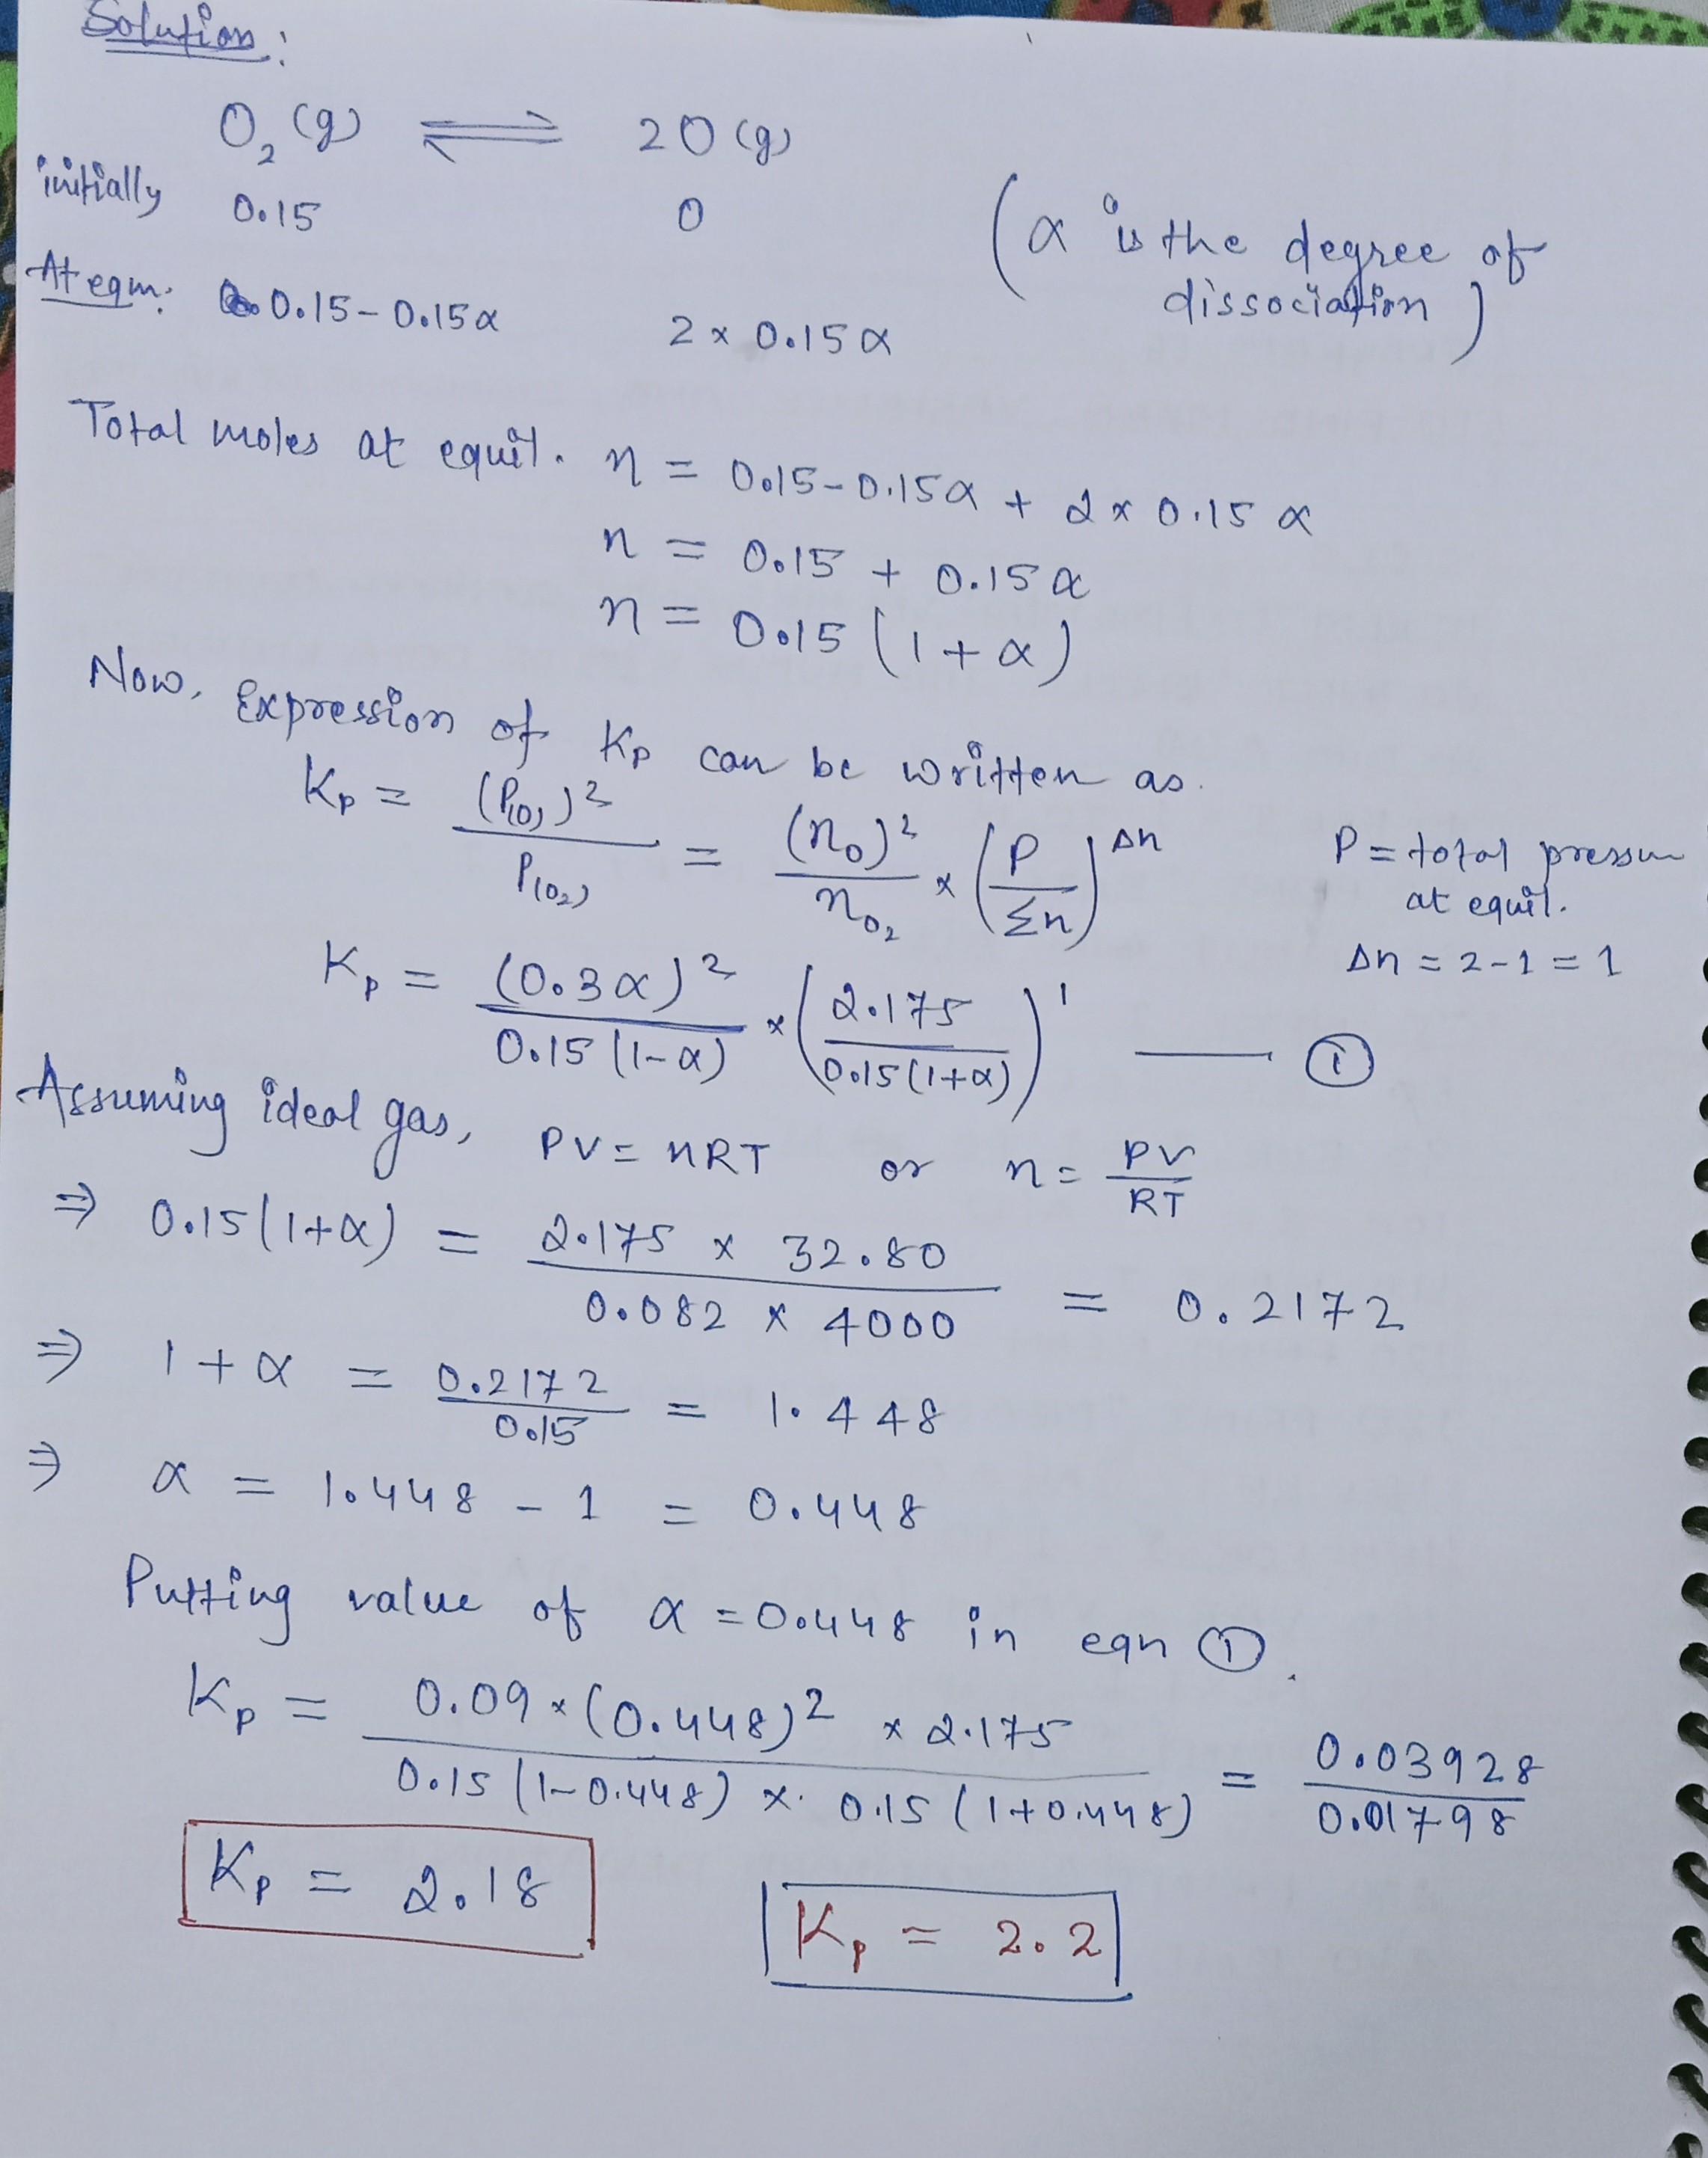 Solution:
O₂(g) ⇌ 2O(g)
initially 0.15 0
(α is the degree of dissociation)
At eqm: 0.15-0.15α 2×0.15α
Total moles at equil. n = 0.15-0.15α + 2×0.15α
n = 0.15 + 0.15α
n = 0.15(1+α)
Now, Expression of Kp can be written as.
Kp = (P(O))²/P(O₂) = (n_O)²/n_O₂ × (P/Σn)^Δn
P = total pressure at equil.
Δn = 2-1 = 1
Kp = (0.3α)²/0.15(1-α) × (2.175/0.15(1+α))¹ — ①
Assuming ideal gas, PV = nRT or n = PV/RT
⇒ 0.15(1+α) = 2.175 × 32.80/0.082 × 4000 = 0.2172
⇒ 1+α = 0.2172/0.15 = 1.448
⇒ α = 1.448 - 1 = 0.448
Putting value of α = 0.448 in eqn ①.
Kp = 0.09×(0.448)² × 2.175/0.15(1-0.448) × 0.15(1+0.448) = 0.03928/0.01798
Kp = 2.18
Kp = 2.2